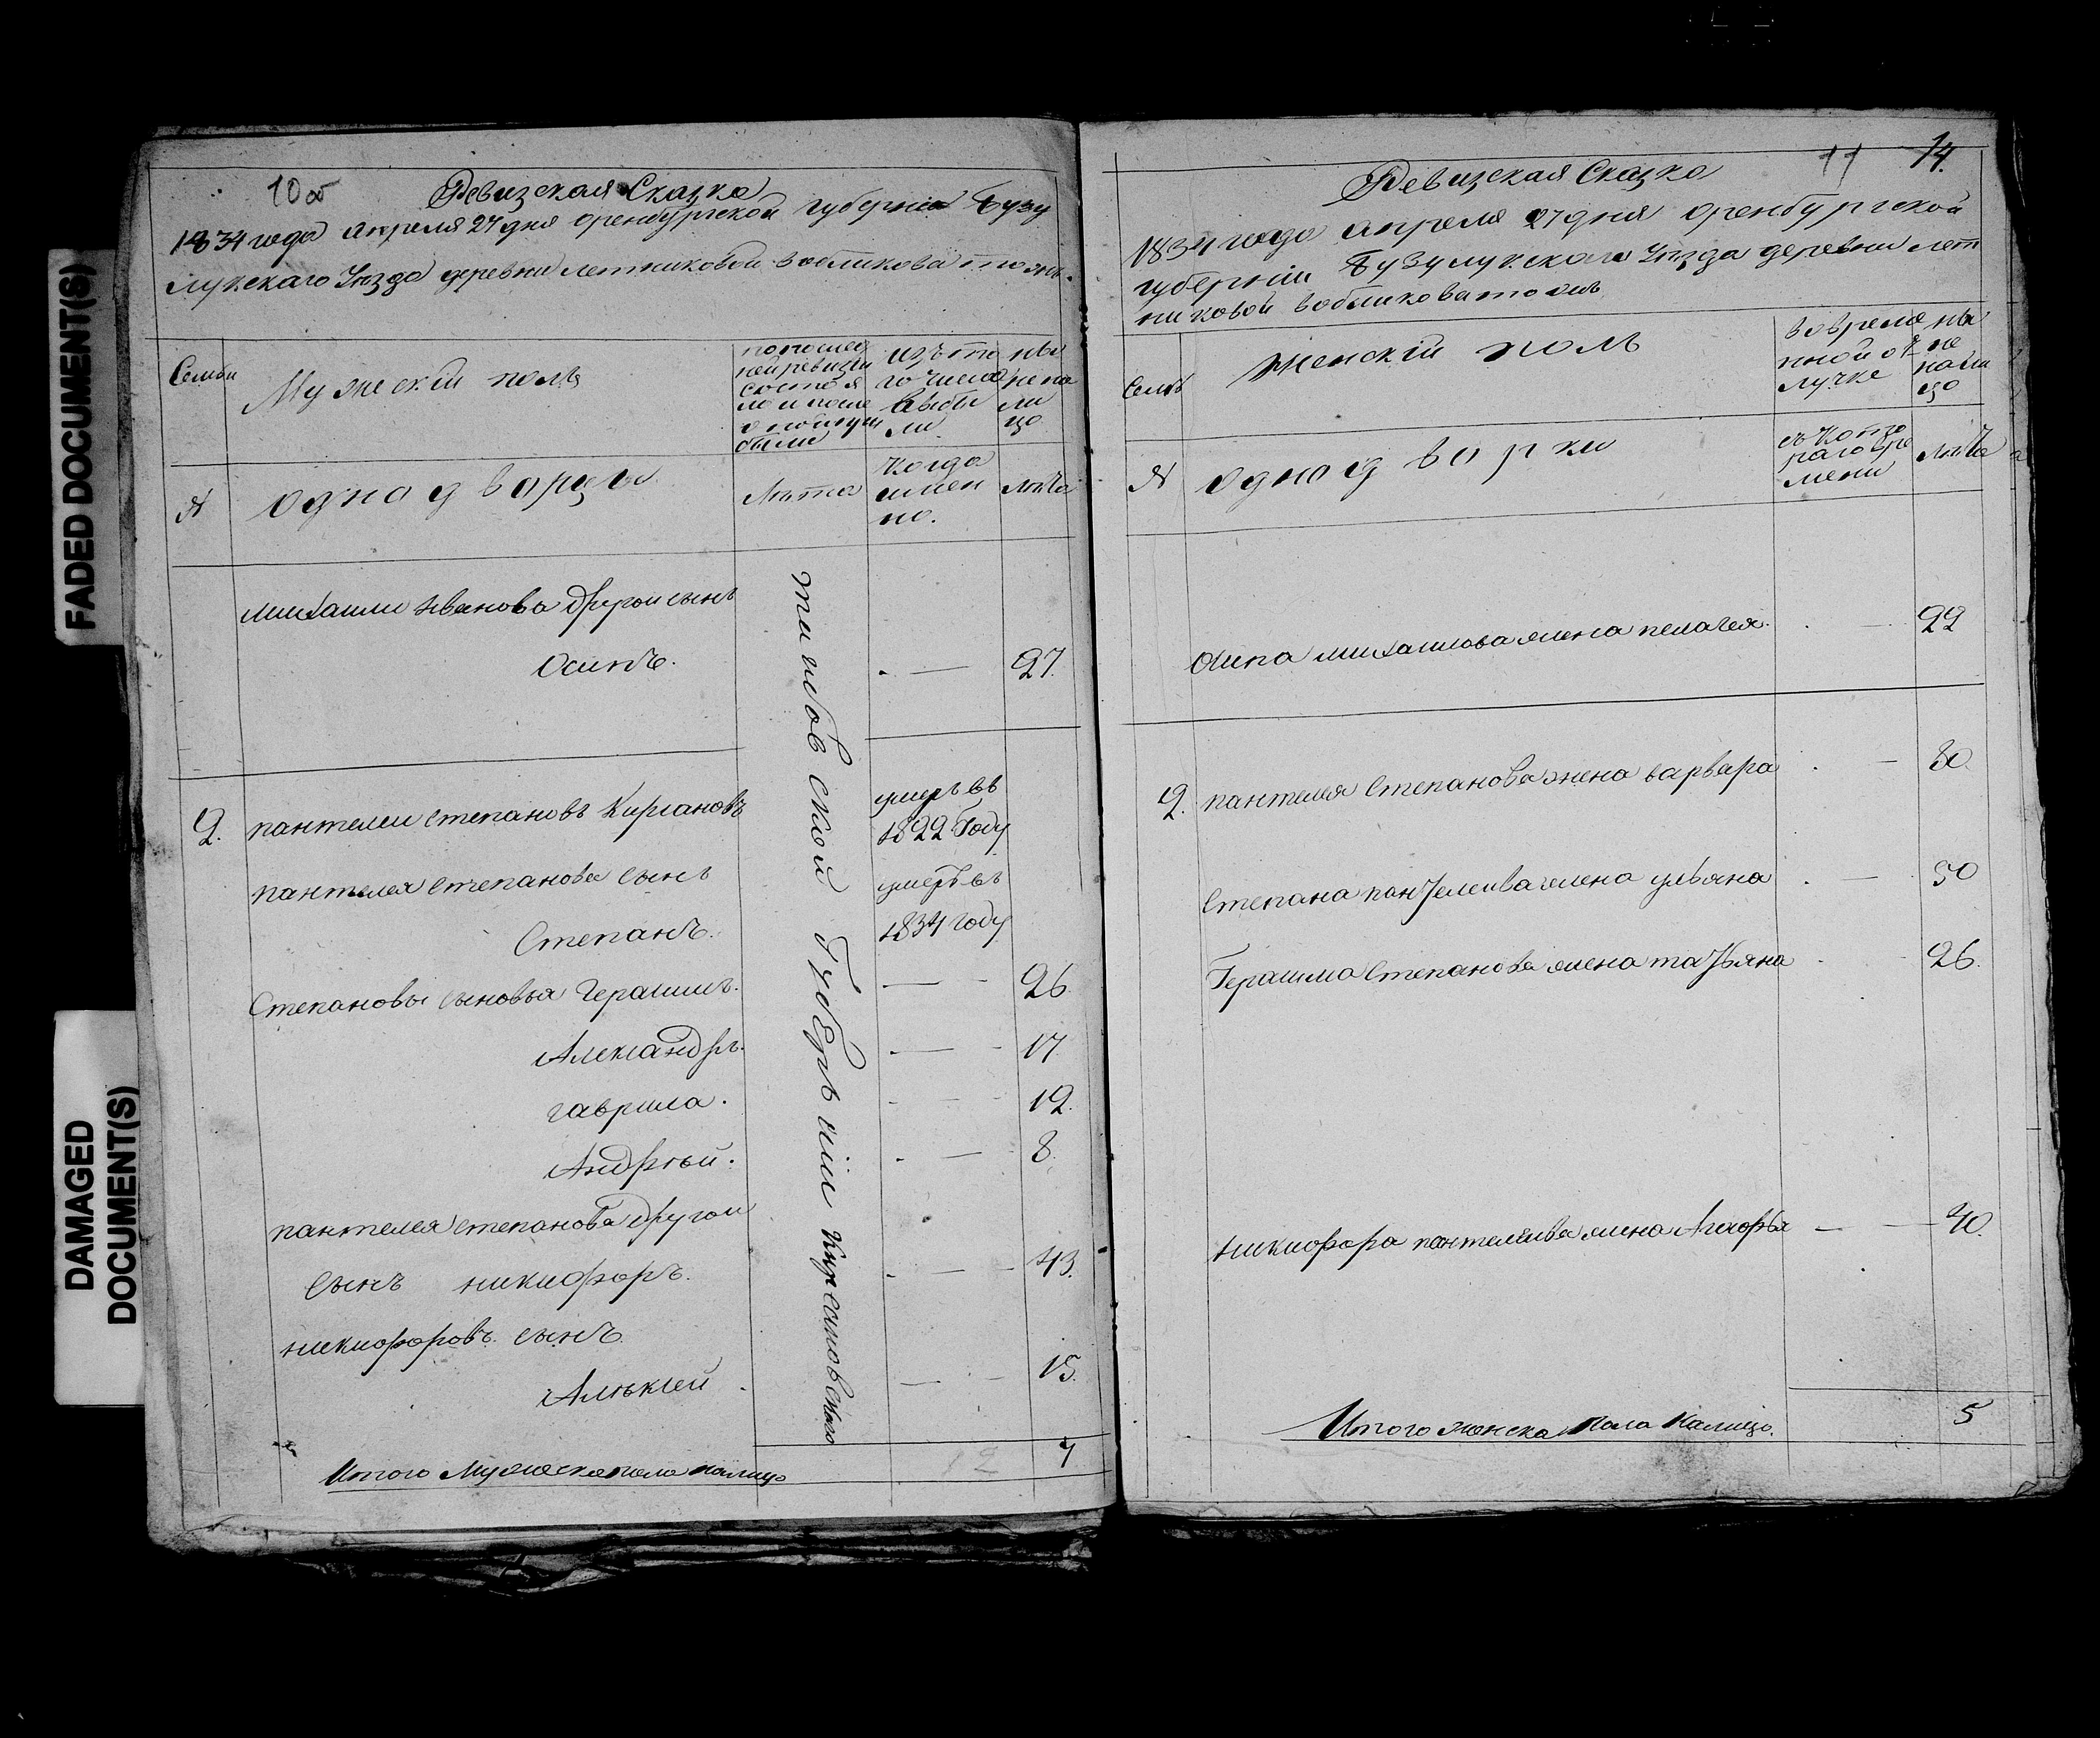 FADED DOCUMENT(S)
DAMAGED
DOCUMENT(S)
10 об
Ревизская Сказка
1834 года апреля 27 дня оренбургской губерніи Бузу
лукскаго Уезда деревни летниковой
Семьи
Мужескій полъ
по послед
ней ревизіи
состоя
ло и после
оной
были
изъ то
го числа
выбы
ли
ны
не на
ли
цо
№
однодворцы
Лѣта
когда
имен
но.
Лѣта
михаилы Иванова другой сынъ
Осипъ.
27.
2.
пантелеи степановъ Кирсановъ
умеръ въ
1822 Году
пантелея степанова сынъ
умеръ въ
Степанъ.
1834 году
Степановы сыновья Герасимъ.
26
Александръ.
17
гаврила.
12.
Андрѣй.
8.
пантелея степанова другои
сынъ никифоръ.
43.
никифоровъ сынъ
Алѣксей
15.
Итого Мужеска пола налицо
12
7
тамбовской Губѣрніи Кирсановскаго
11
14.
Ревизская Сказка
1834 года апреля 27 дня оренбургской
губерніи Бузулукскаго Уезда деревни лет
никовой
Семьѣ
женскій полъ
во време
нной от
лучке
ны
не
нали
цо
№
однодворки
съ кото
раго вре
мени
Лѣта
Осипа михаилова жена пелагея.
22
2.
пантелея Степанова жена варвара
80
Степана пантелеива жена ульяна
50
Герасима Степанова жена татьяна
26.
никифора пантелеива жена
40.
Итого женска пола налицо.
5